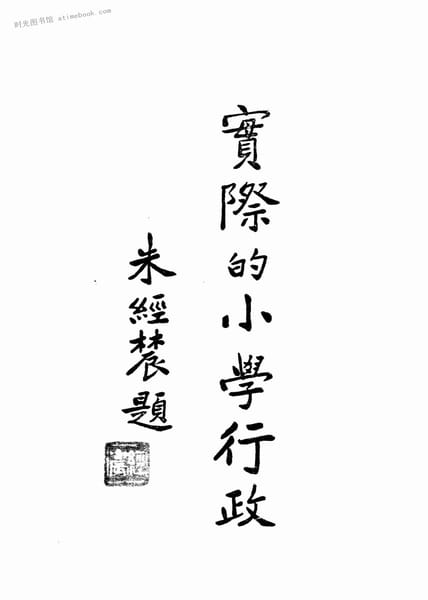 时光图书馆 atimebook.com
實際的小學行政
朱經農題